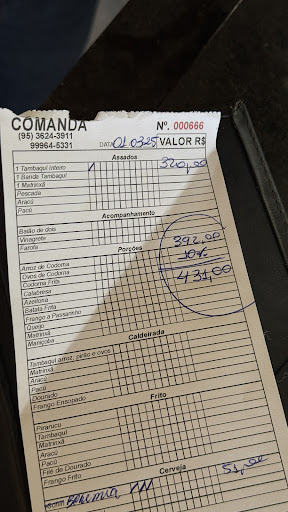 COMANDA Nº. 000666
(95) 3624-3911
99964-5331 DATA 01.03.25 VALOR R$
Assados
1 Tambaqui Inteiro 1 320,00
1 Banda Tambaqui
1 Matrinxã
Pescada
Aracú
Pacú
Acompanhamento
Baião de dois
Vinagrete
Farofa
Porções
Arroz de Codorna
Ovos de Codorna
Codorna Frita
Calabresa
Azeitona
Batata Frita
Frango a Passarinho
Queijo
Matrinxã
Maniçoba
392,00
10%
431,00
Caldeirada
Tambaqui arroz, pirão e ovos
Matrinxã
Aracú
Pacú
Dourado
Frango Ensopado
Frito
Pirarucu
Tambaqui
Matrinxã
Aracú
Pacú
Filé de Dourado
Frango Frito
Cerveja